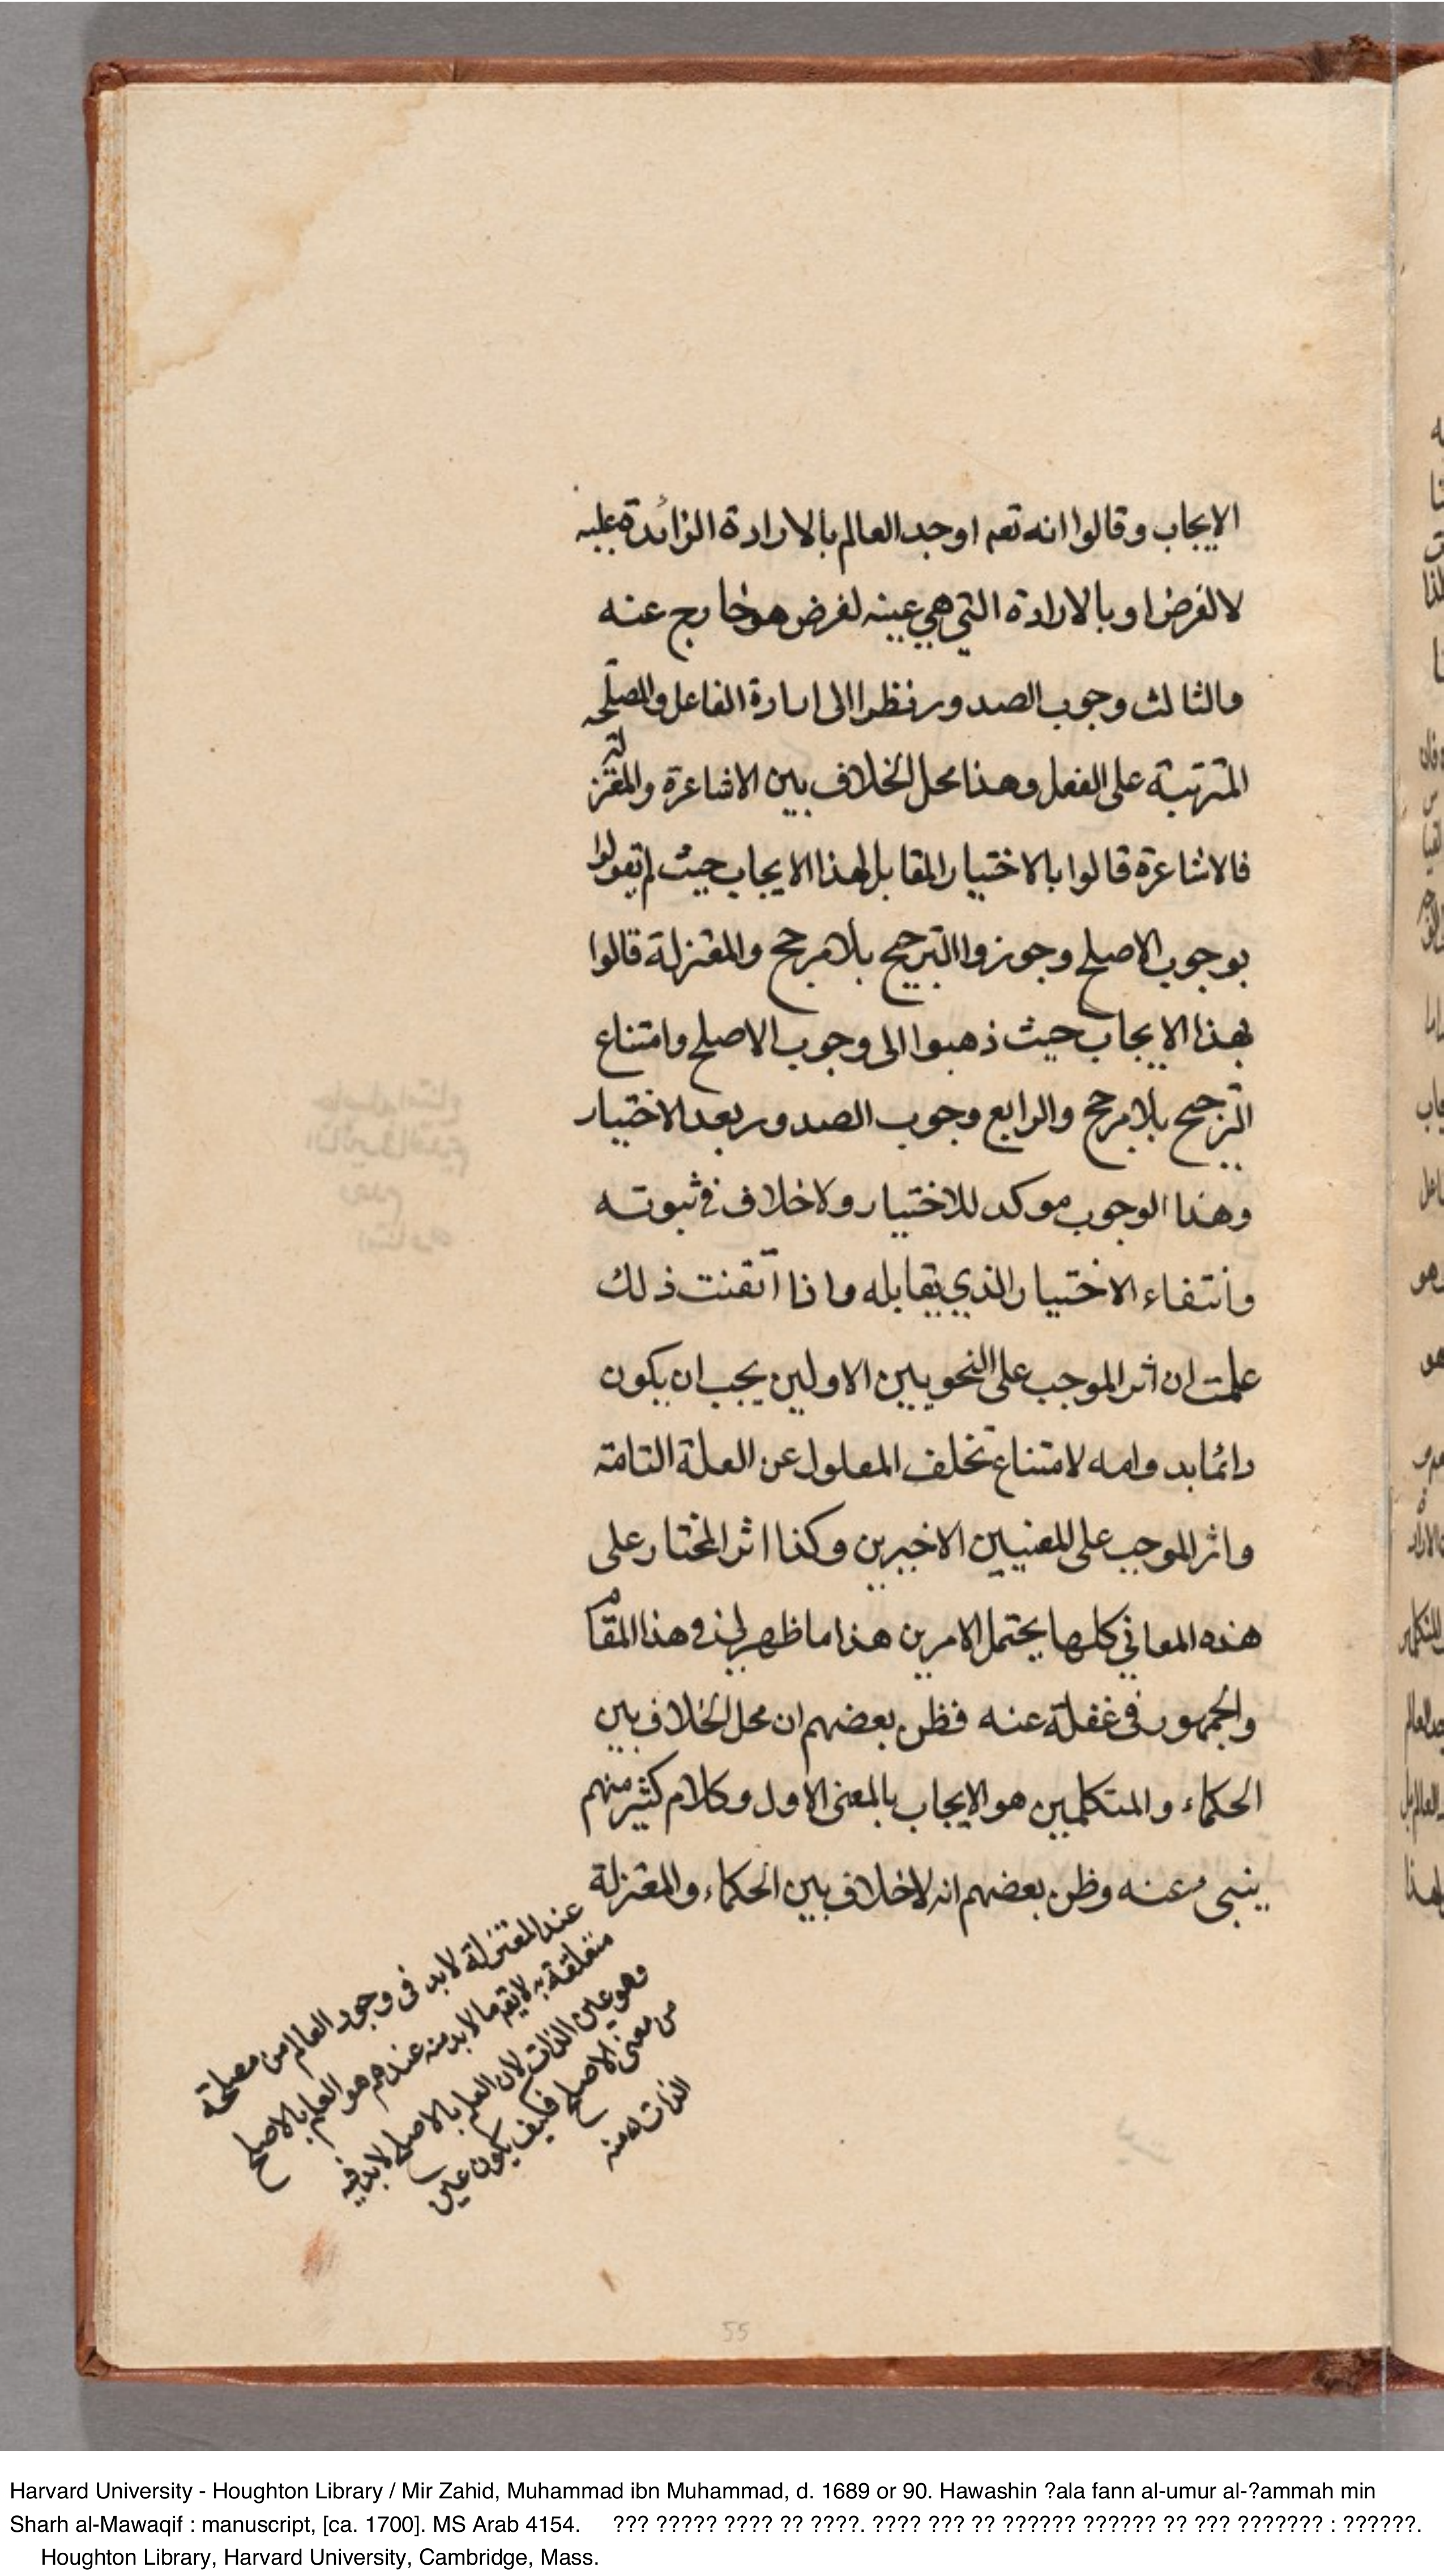 الايجاب وقالوا انه تعم اوجد العالم بالارادة الزائدة عليه
لا لغرض او بالارادة التي هي عينه لغرض هو خارج عنه
والثالث وجوب الصدور نظرا الى ارادة الفاعل والمصلحه
المترتبة على الفعل وهذا محل الخلاف بين الاشاعرة والمعتزلة
فالاشاعرة قالوا بالاختيار المقابل لهذا الايجاب حيث لم يقولوا
بوجوب الاصلح وجوزوا الترجيح بلا مرجح والمعتزلة قالوا
بهذا الايجاب حيث ذهبوا الى وجوب الاصلح وامتناع
الترجيح بلا مرجح والرابع وجوب الصدور بعد الاختيار
وهذا الوجوب موكد للاختيار ولا خلاف في ثبوته
وانتفاء الاختيار الذي يقابله واذا اتقنت ذلك
علمت ان اثر الموجب على النحويين الاولين يجب ان يكون
دائما بدوامه لامتناع تخلف المعلول عن العلة التامة
واثر الموجب على المعنيين الاخيرين وكذا اثر المختار على
هذه المعاني كلها يحتمل الامرين هذا ما ظهر لي في هذا المقام
والجمهور في غفلة عنه فظن بعضهم ان محل الخلاف بين
الحكماء والمتكلمين هو الايجاب بالمعنى الاول وكلام كثير منهم
ينبىء عنه وظن بعضهم انه لا خلاف بين الحكماء والمعتزلة
عند المعتزلة لا بد في وجود العالم من مصلحة
متعلقة به لا يقم ما لا بد منه عندهم هو العلم بالاصلح
وهو عين الذات لان العلم بالاصلح لا بد فيه
من معنى الاصلح فكيف يكون عين
الذات منه
55
Harvard University - Houghton Library / Mir Zahid, Muhammad ibn Muhammad, d. 1689 or 90. Hawashin ?ala fann al-umur al-?ammah min
Sharh al-Mawaqif : manuscript, [ca. 1700]. MS Arab 4154. ??? ????? ???? ?? ????. ???? ??? ?? ?????? ?????? ?? ??? ??????? : ??????.
Houghton Library, Harvard University, Cambridge, Mass.